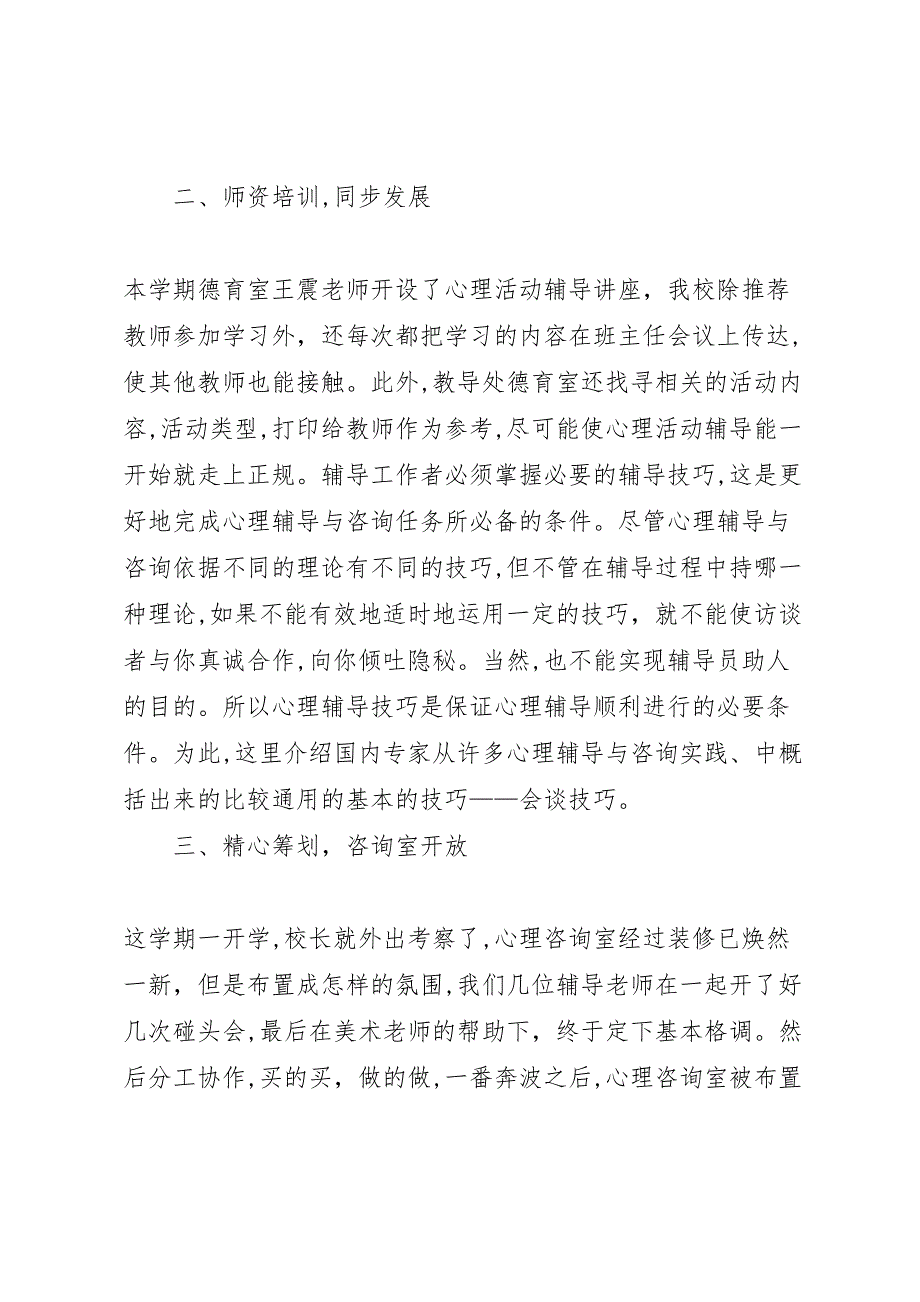 二、师资培训,同步发展
本学期德育室王震老师开设了心理活动辅导讲座，我校除推荐
教师参加学习外，还每次都把学习的内容在班主任会议上传达,
使其他教师也能接触。此外,教导处德育室还找寻相关的活动内
容,活动类型,打印给教师作为参考,尽可能使心理活动辅导能一
开始就走上正规。辅导工作者必须掌握必要的辅导技巧,这是更
好地完成心理辅导与咨询任务所必备的条件。尽管心理辅导与
咨询依据不同的理论有不同的技巧,但不管在辅导过程中持哪一
种理论,如果不能有效地适时地运用一定的技巧，就不能使访谈
者与你真诚合作,向你倾吐隐秘。当然,也不能实现辅导员助人
的目的。所以心理辅导技巧是保证心理辅导顺利进行的必要条
件。为此,这里介绍国内专家从许多心理辅导与咨询实践、中概
括出来的比较通用的基本的技巧——会谈技巧。
三、精心筹划，咨询室开放
这学期一开学,校长就外出考察了,心理咨询室经过装修已焕然
一新，但是布置成怎样的氛围,我们几位辅导老师在一起开了好
几次碰头会,最后在美术老师的帮助下，终于定下基本格调。然
后分工协作,买的买，做的做,一番奔波之后,心理咨询室被布置